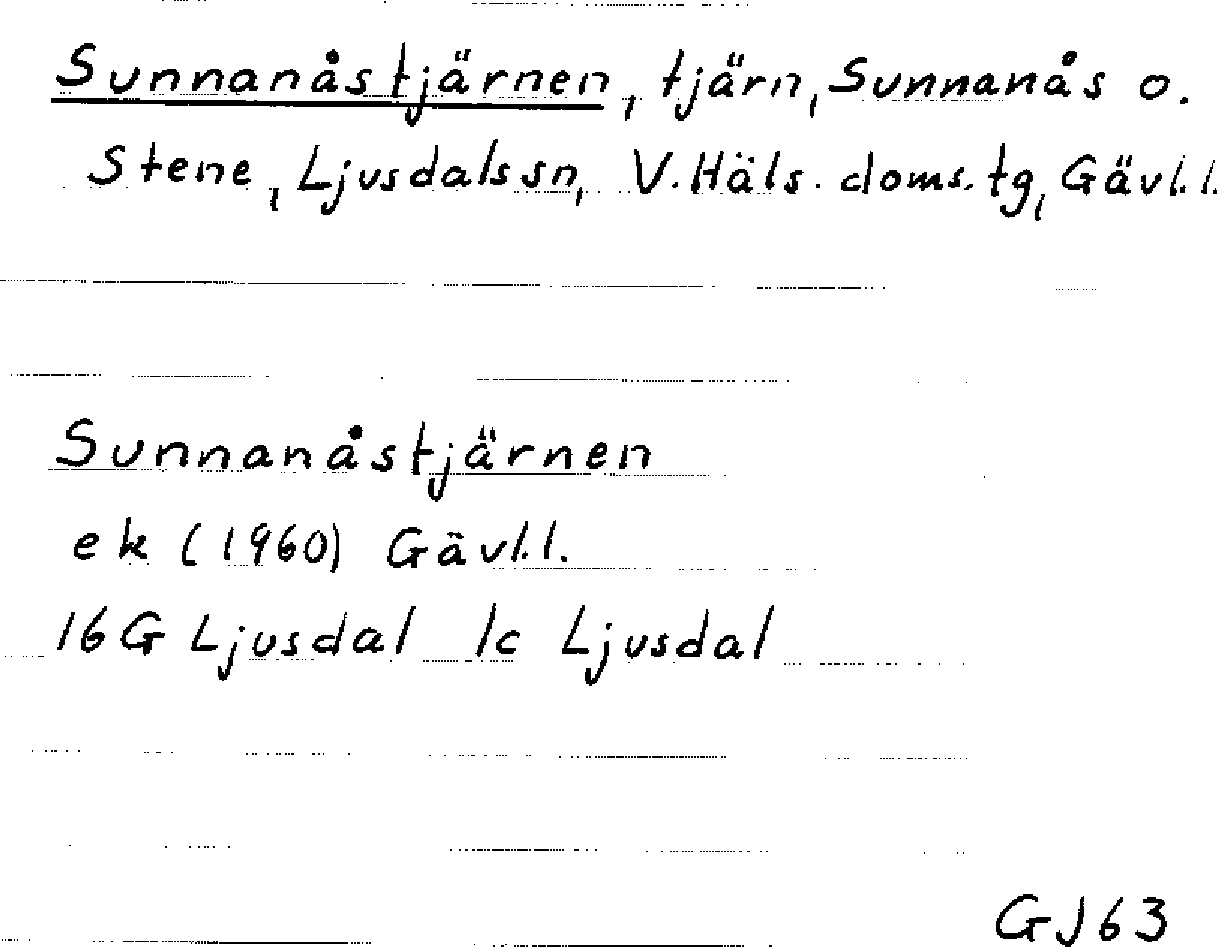 Sunnanåstjärnen, tjärn, Sunnanås o.
Stene, Ljusdals sn, V. Häls. doms. tg, Gävl. l.
Sunnanåstjärnen
ek (1960) Gävl. l.
16G Ljusdal 1c Ljusdal
GJ63